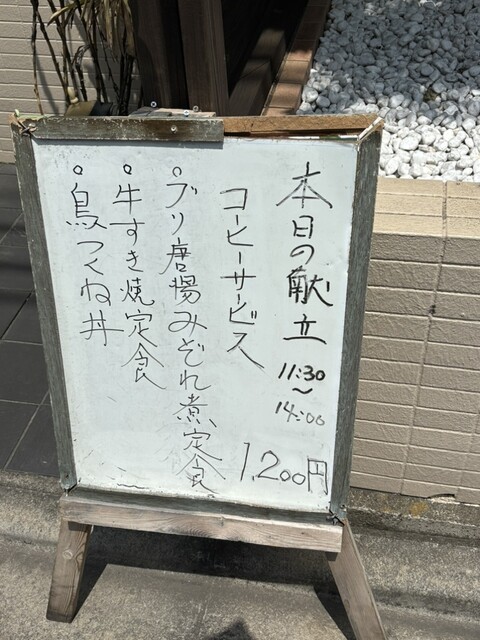 本日の献立
11:30
〜
14:00
コーヒーサービス
1,200円
○ブリ唐揚みぞれ煮定食
○牛すき焼定食
○鳥つくね丼